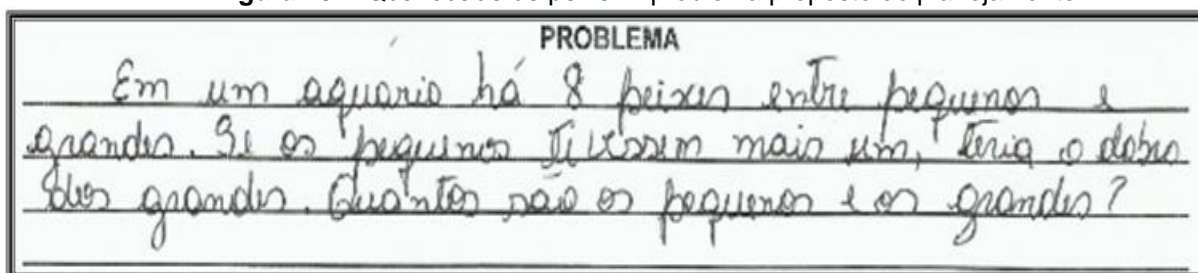 PROBLEMA
Em um aquário há 8 peixes entre pequenos e
grandes. Se os pequenos tivessem mais um, teria o dobro
dos grandes. Quantos são os pequenos e os grandes?